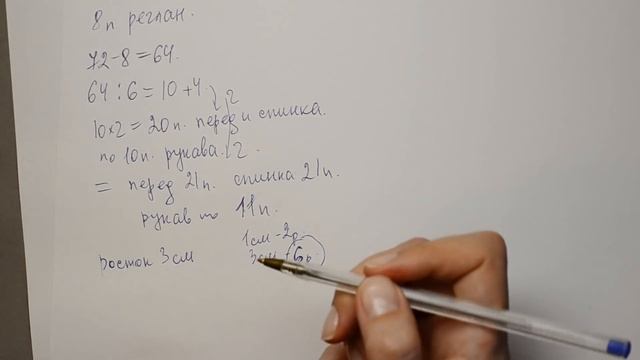 8п реглан.
72-8=64.
64:6=10+4
2
10х2=20п. перед и спинка.
по 10п. рукава. 2.
= перед 21п. спинка 21п.
рукав по 11п.
1см-2р
росток 3см 3см 6р.